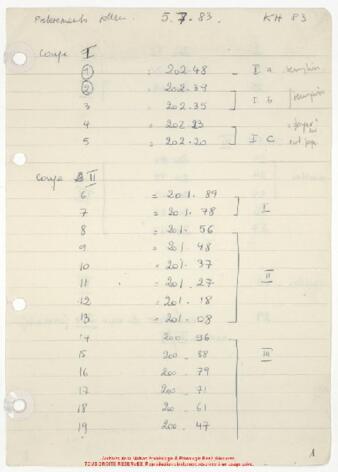 Prélèvements pollen 5.7.83. KH 83
Coupe I
1 = 202.48 I a
2 = 202.39
3 = 202.35 I b
4 = 202.23
5 = 202.20 I C
Coupe II
6 = 201.89
7 = 201.78 I
8 = 201.56
9 = 201.48
10 = 201.37
11 = 201.27 II
12 = 201.18
13 = 201.08
14 200.96
15 200.88 III
16 200.79
17 200.71
18 200.61
19 200.47
1